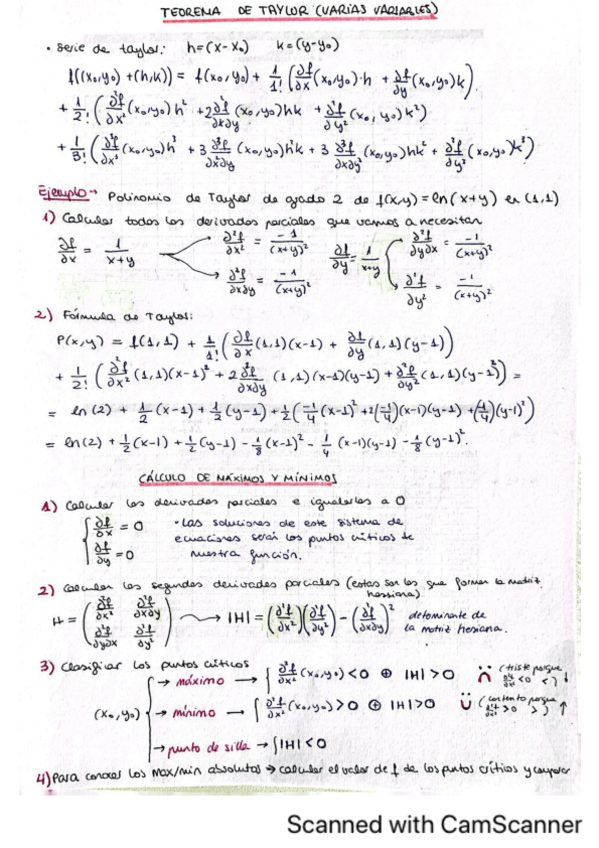 TEOREMA DE TAYLOR (VARIAS VARIABLES)
• serie de taylor: h=(x-x₀) k=(y-y₀)
f((x₀,y₀)+(h,k)) = f(x₀,y₀) + 1/1! (∂f/∂x (x₀,y₀)·h + ∂f/∂y (x₀,y₀)k)
+ 1/2! (∂²f/∂x² (x₀,y₀)h² + 2 ∂²f/∂x∂y (x₀,y₀)hk + ∂²f/∂y² (x₀,y₀)k²)
+ 1/3! (∂³f/∂x³ (x₀,y₀)h³ + 3 ∂³f/∂x²∂y (x₀,y₀)h²k + 3 ∂³f/∂x∂y² (x₀,y₀)hk² + ∂³f/∂y³ (x₀,y₀)k³)
Ejemplo → Polinomio de Taylor de grado 2 de f(x,y) = ln(x+y) en (1,1)
1) Calcular todas las derivadas parciales que vamos a necesitar
∂f/∂x = 1/(x+y) → ∂²f/∂x² = -1/(x+y)² → ∂²f/∂x∂y = -1/(x+y)² ∂f/∂y = 1/(x+y) → ∂²f/∂y∂x = -1/(x+y)² → ∂²f/∂y² = -1/(x+y)²
2) Fórmula de Taylor:
P(x,y) = f(1,1) + 1/1! (∂f/∂x (1,1)(x-1) + ∂f/∂y (1,1)(y-1))
+ 1/2! (∂²f/∂x² (1,1)(x-1)² + 2 ∂²f/∂x∂y (1,1)(x-1)(y-1) + ∂²f/∂y² (1,1)(y-1)²) =
= ln(2) + 1/2 (x-1) + 1/2 (y-1) + 1/2 (-1/4 (x-1)² + 2(-1/4)(x-1)(y-1) + (-1/4)(y-1)²)
= ln(2) + 1/2 (x-1) + 1/2 (y-1) - 1/8 (x-1)² - 1/4 (x-1)(y-1) - 1/8 (y-1)².
CÁLCULO DE MÁXIMOS Y MÍNIMOS
1) Calcular las derivadas parciales e igualarlas a 0
{ ∂f/∂x = 0 • Las soluciones de este sistema de
ecuaciones serán los puntos críticos de
∂f/∂y = 0 nuestra función.
2) Calcular las segundas derivadas parciales (estas son las que forman la matriz
hessiana)
H = (∂²f/∂x² ∂²f/∂x∂y ∂²f/∂y∂x ∂²f/∂y²) → |H| = (∂²f/∂x²)(∂²f/∂y²) - (∂²f/∂x∂y)² determinante de
la matriz hesiana.
3) Clasificar los puntos críticos
→ máximo → { ∂²f/∂x² (x₀,y₀) < 0 ⊕ |H| > 0 (triste porque ∂²f/∂x² < 0 <) ↓
(x₀,y₀) → mínimo → { ∂²f/∂x² (x₀,y₀) > 0 ⊕ |H| > 0 (contento porque ∂²f/∂x² > 0 >) ↑
→ punto de silla → { |H| < 0
4) Para conocer los max/min absolutos → calcular el valor de f de los puntos críticos y comparar
Scanned with CamScanner